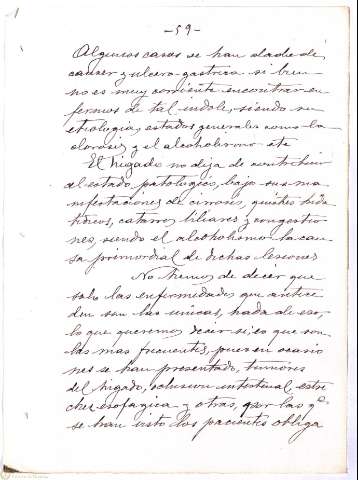 -59-
Algunos casos se han dado de
cancer y ulcera gastrica si bien
no es muy corriente encontrar en
fermos de tal indole, siendo su
etiologia, estados generales como la
clorosis y el alcoholismo etc
El higado no deja de contribuir
al estado patologico, bajo sus ma
nifestaciones de cirrosis, quistes hida
tidicos, catarros biliares y congestio
nes, siendo el alcoholismo la cau
sa primordial de dichas lesiones
No hemos de decir que
solo las enfermedades que antece
den son las unicas, nada de eso,
lo que queremos decir si, es que son
las mas frecuentes, pues en ocasio
nes se han presentado, tumores
del higado, oclusion intestinal, estre
chez esofagica y otras, por las qe
se han visto los pacientes obliga